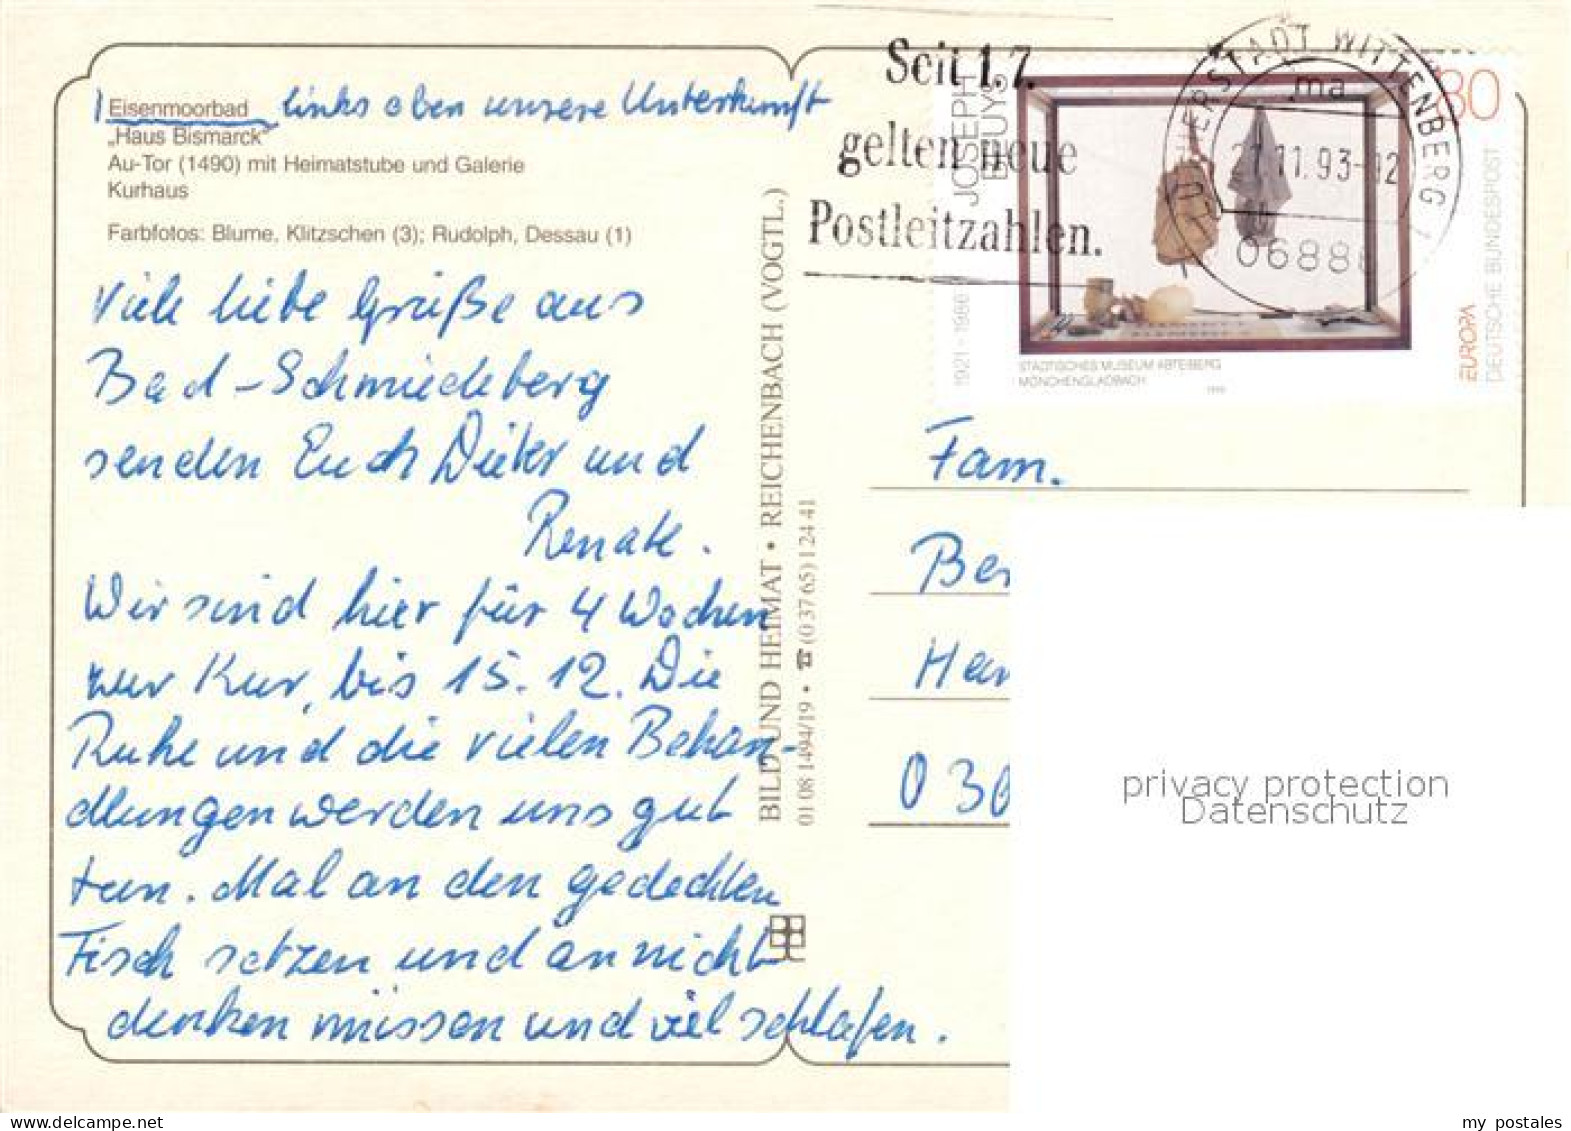 Eisenmoorbad links oben unsere Unterkunft
„Haus Bismarck“
Au-Tor (1490) mit Heimatstube und Galerie
Kurhaus
Farbfotos: Blume, Klitzschen (3); Rudolph, Dessau (1)
Viele liebe Grüße aus
Bad-Schmiedeberg
senden Euch Dieter und
Renate.
Wir sind hier für 4 Wochen
zur Kur, bis 15. 12. Die
Ruhe und die vielen Behan-
dlungen werden uns gut
tun. Mal an den gedeckten
Tisch setzen und an nicht
denken müssen und viel schlafen.
BILD UND HEIMAT • REICHENBACH (VOGTL.)
01 08 1494/19 • ☎ (0 37 65) 1 24 41
Seit 1.7.
gelten neue
Postleitzahlen.
LUTHERSTADT WITTENBERG 1
ma
11.93-12
06886
JOSEPH
BEUYS
1921-1986
80
STÄDTISCHES MUSEUM ABTEIBERG
MÖNCHENGLADBACH
EUROPA
DEUTSCHE BUNDESPOST
Fam.
Ber
030
privacy protection
Datenschutz
DELCAMPE.net
my_postales